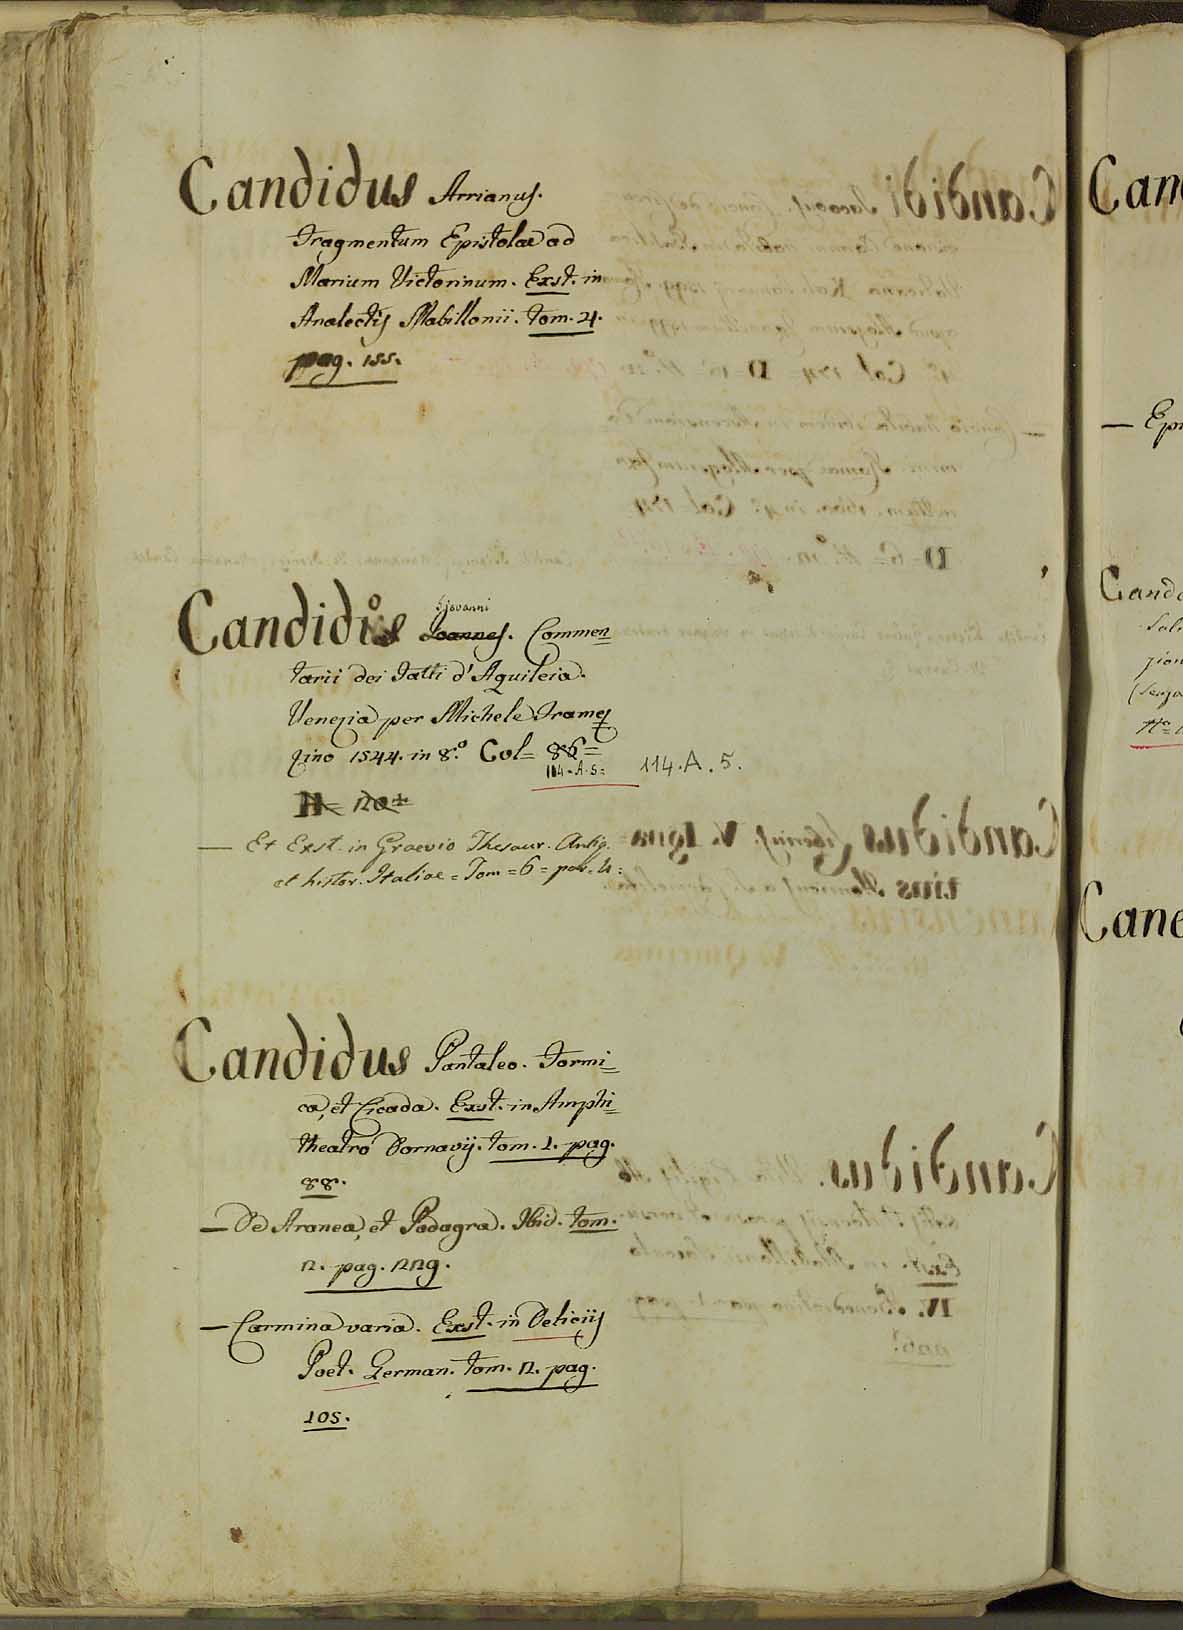 Candidus Arrianus.
Fragmentum Epistolae ad
Marium Victorinum. Exst. in
Analectis Mabillonii. tom. 4.
pag. 155.
Giovanni
Candido Joannes. Commen=
tarii dei Fatti d'Aquileia.
Venezia per Michele Tramez=
zino 1544. in 8.º Col= 86=
114=A=5= 114.A.5.
— Et Exst. in Graevio Thesaur. Antiq.
et histor. Italiae = Tom = 6 = par. 4:
Candidus Pantaleo. Formi=
ca, et Cicada. Exst. in Amphi=
theatro Dornavij. tom. 1. pag.
88.
— De Aranea, et Podagra. Ibid. tom.
2. pag. 229.
— Carmina varia. Exst. in Deliciis
Poet. German. tom. 2. pag.
105.
Can
— Epi
Cando
Cane